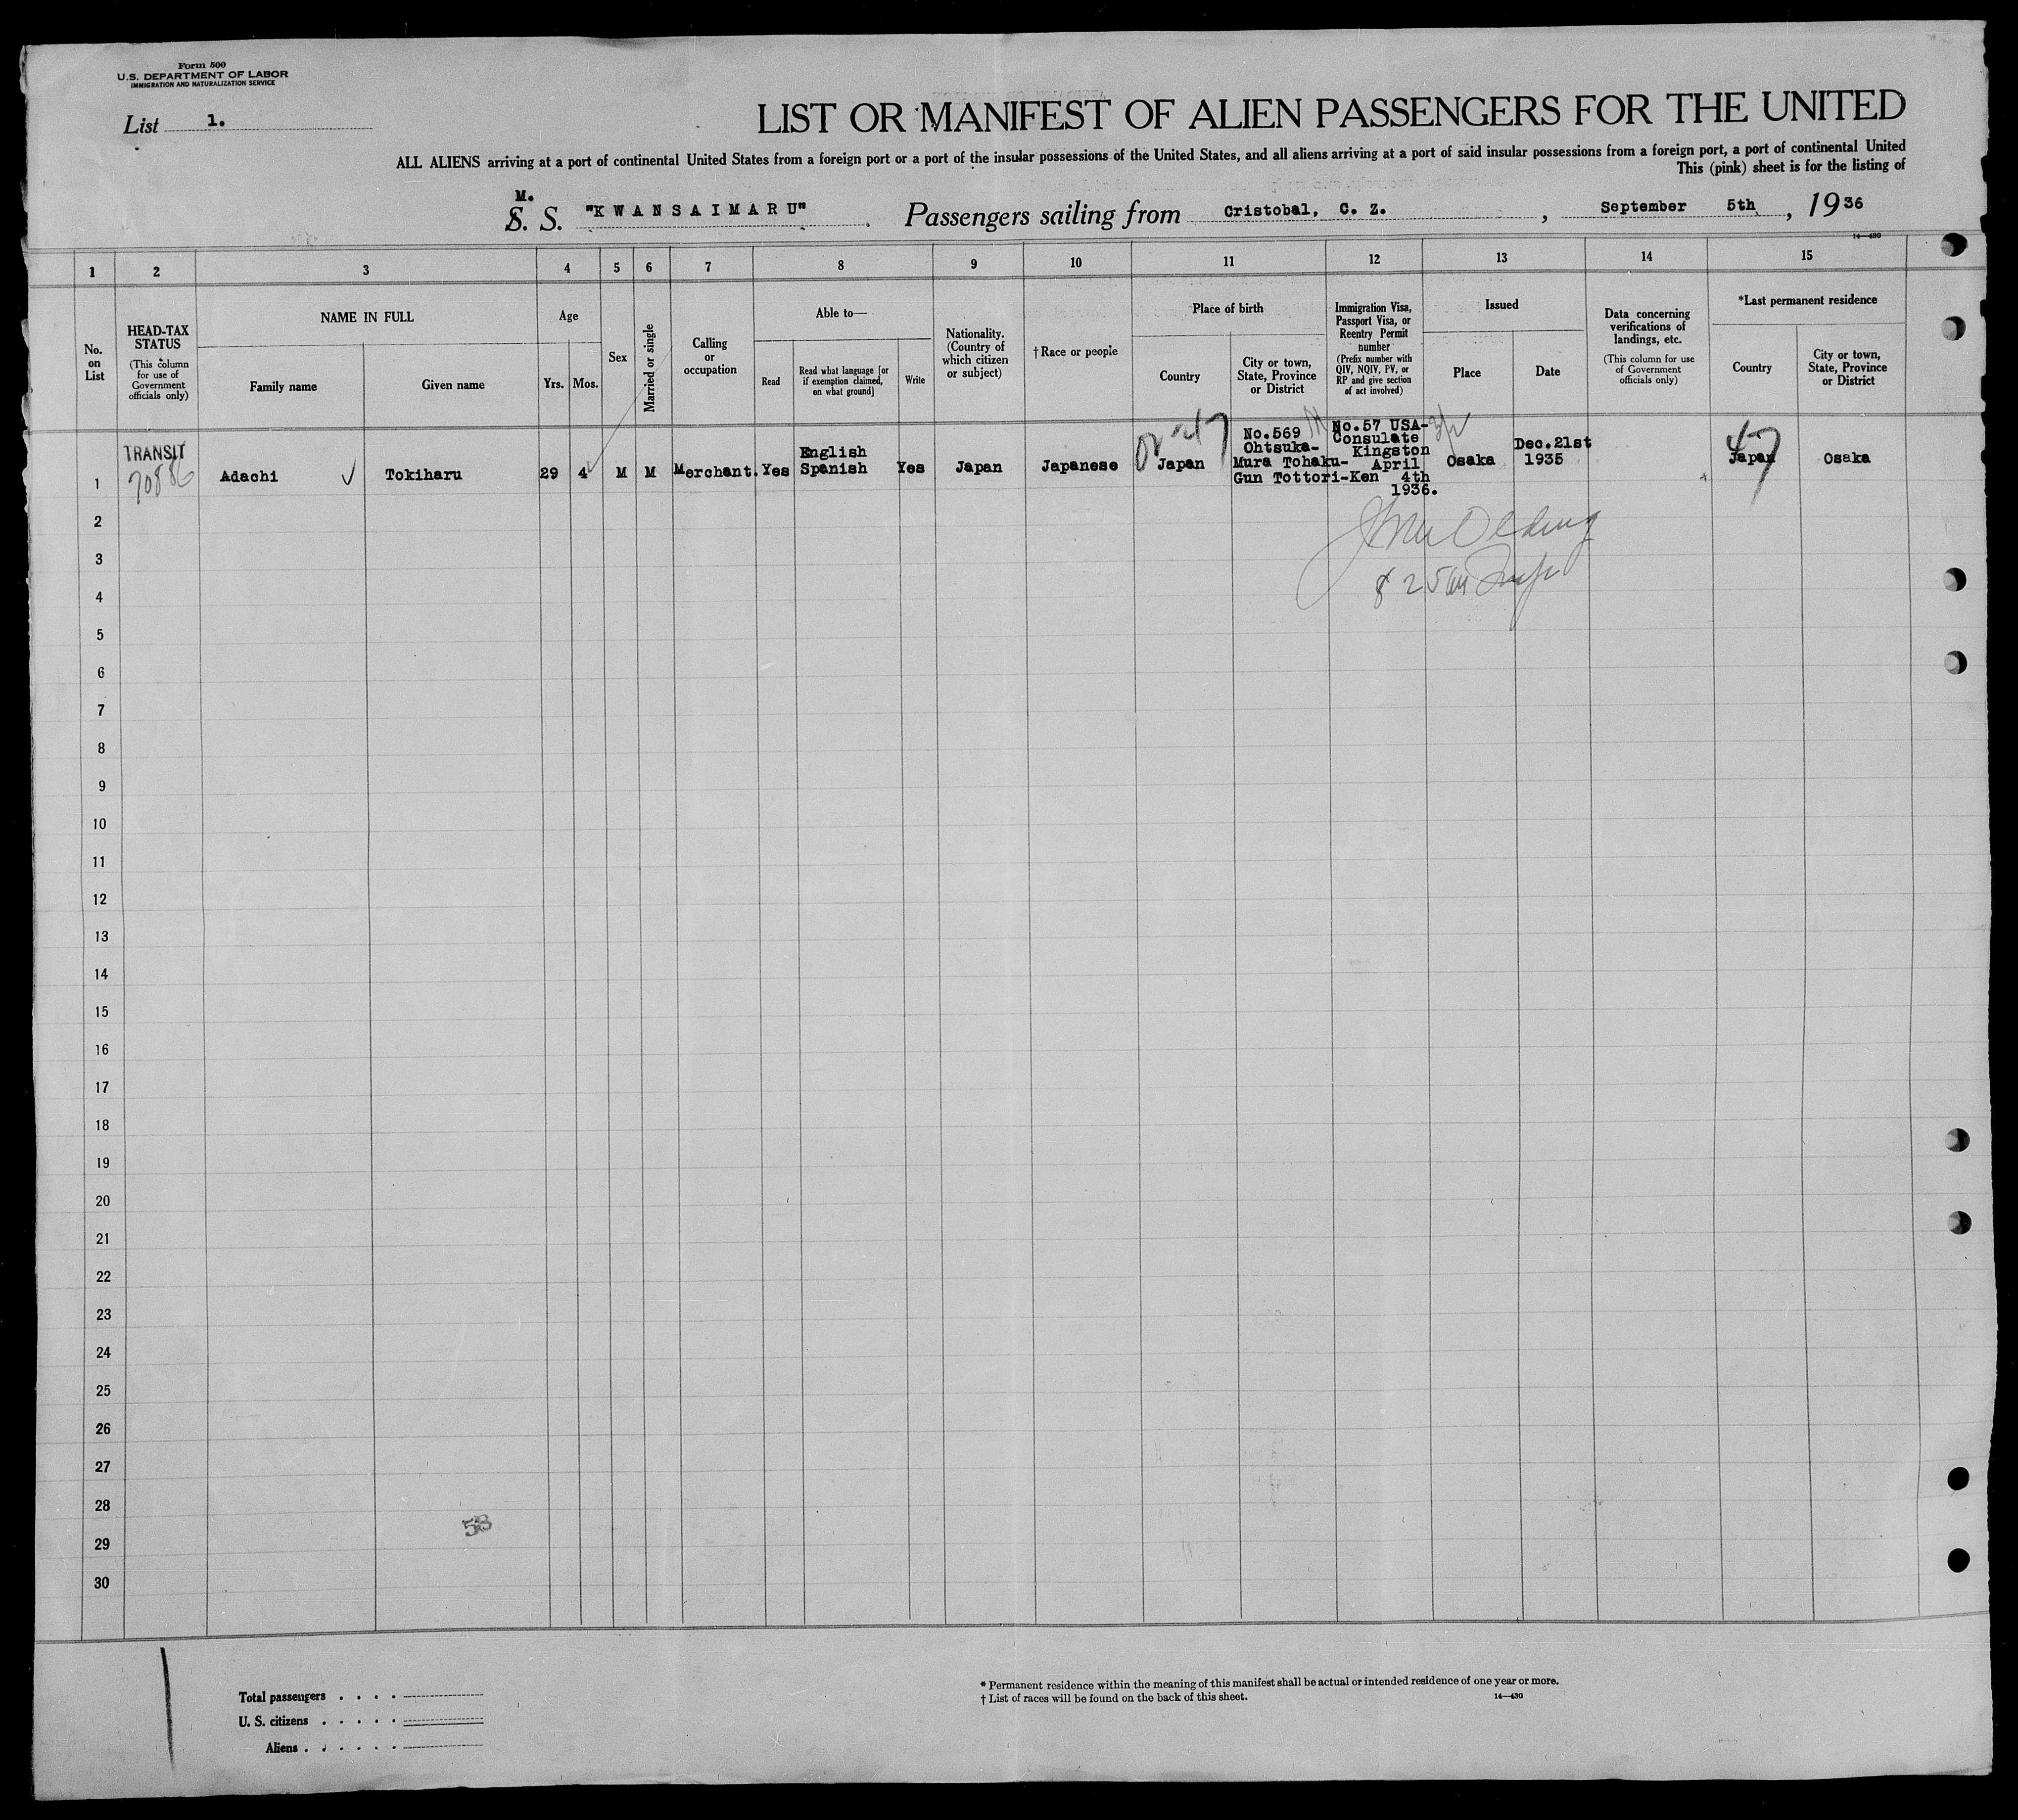 Form 500
U.S. DEPARTMENT OF LABOR
IMMIGRATION AND NATURALIZATION SERVICE
List 1.
LIST OR MANIFEST OF ALIEN PASSENGERS FOR THE UNITED
ALL ALIENS arriving at a port of continental United States from a foreign port or a port of the insular possessions of the United States, and all aliens arriving at a port of said insular possessions from a foreign port, a port of continental United
This (pink) sheet is for the listing of
M.
S. S. "KWANSAIMARU" Passengers sailing from Cristobal, C. Z. , September 5th , 1936
14—430
1 2 3 4 5 6 7 8 9 10 11 12 13 14 15
No. on List
HEAD-TAX STATUS
(This column for use of Government officials only)
NAME IN FULL
Family name
Given name
Age
Yrs. Mos.
Sex
Married or single
Calling or occupation
Able to—
Read
Read what language [or if exemption claimed, on what ground]
Write
Nationality. (Country of which citizen or subject)
†Race or people
Place of birth
Country
City or town, State, Province or District
Immigration Visa, Passport Visa, or Reentry Permit number
(Prefix number with QIV, NQIV, PV, or RP and give section of act involved)
Issued
Place
Date
Data concerning verifications of landings, etc.
(This column for use of Government officials only)
*Last permanent residence
Country
City or town, State, Province or District
1
TRANSIT
70886
Adachi
Tokiharu
29 4 M M Merchant. Yes
English
Spanish
Yes
Japan
Japanese
47
Japan
No.569
Ohtsuka-
Mura Tohaku-
Gun Tottori-Ken
No.57 USA-
Consulate
Kingston
April
4th
1936.
Osaka
Dec.21st
1935
47
Japan
Osaka
2
3
4
5
6
7
8
9
10
11
12
13
14
15
16
17
18
19
20
21
22
23
24
25
26
27
28
29
30
58
Total passengers . . . .
U. S. citizens . . . . .
Aliens . . . . . .
* Permanent residence within the meaning of this manifest shall be actual or intended residence of one year or more.
† List of races will be found on the back of this sheet.
14—430